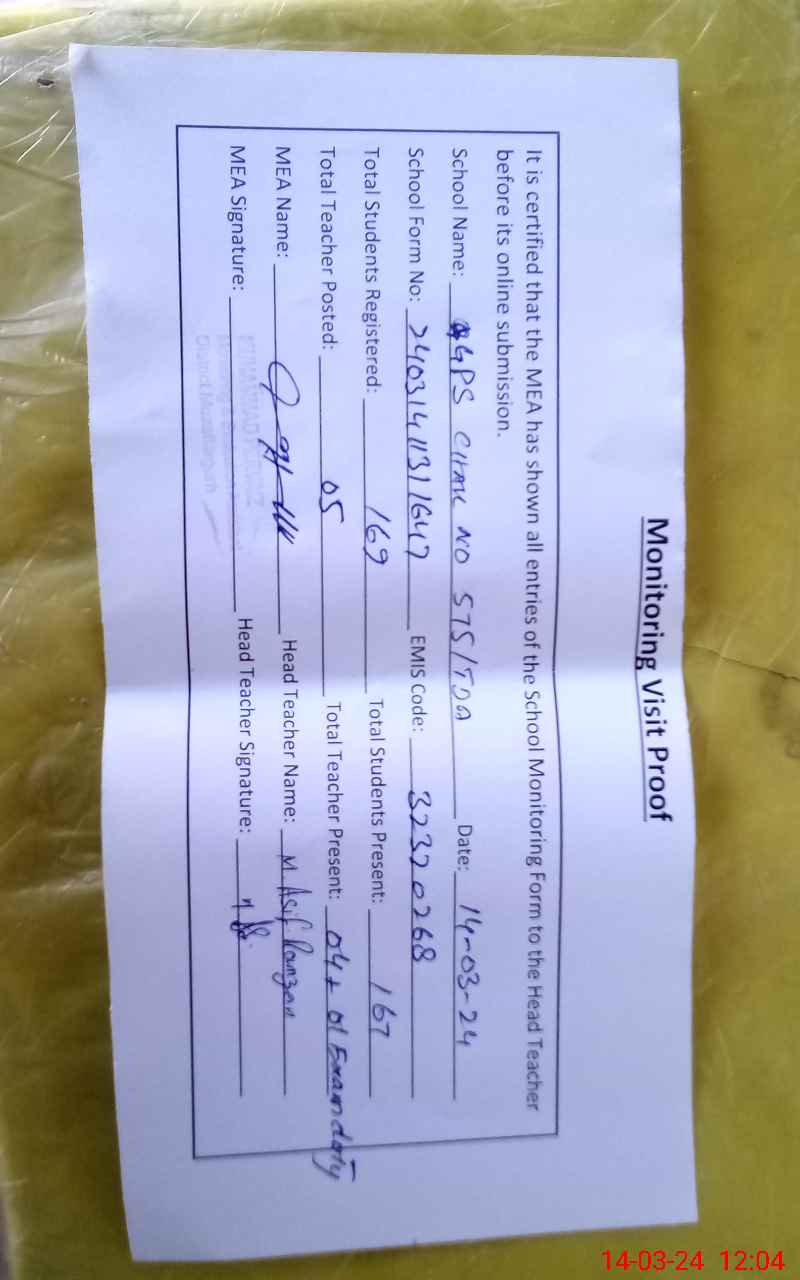 Monitoring Visit Proof
It is certified that the MEA has shown all entries of the School Monitoring Form to the Head Teacher
before its online submission.
School Name: GPS CHAK NO 575/TDA Date: 14-03-24
School Form No: 24031411311647 EMIS Code: 32320268
Total Students Registered: 169 Total Students Present: 167
Total Teacher Posted: 05 Total Teacher Present: 04 + 01 Exam duty
MEA Name: Head Teacher Name: M Asif Ramzan
MEA Signature: Head Teacher Signature:
District Muzaffargarh
14-03-24 12:04